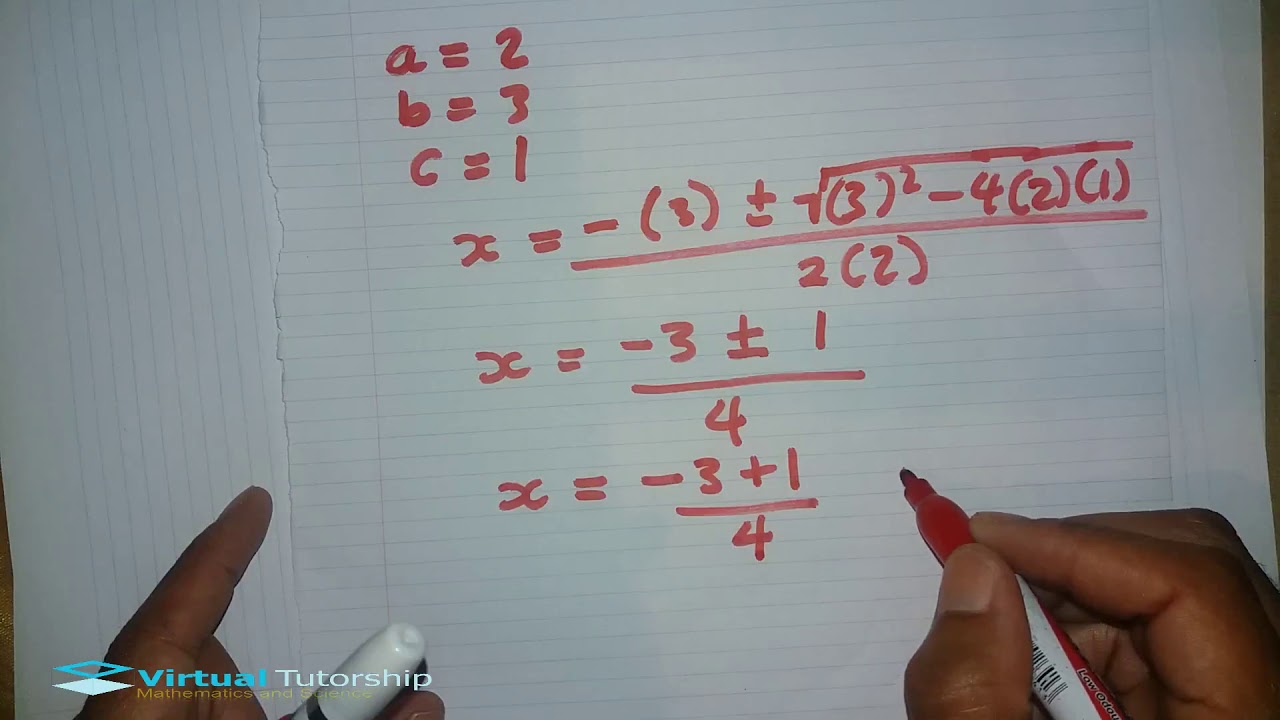 a = 2
b = 3
c = 1
x = -(3) ± √(3)² - 4(2)(1)
2(2)
x = -3 ± 1
4
x = -3 + 1
4
Low Odou
Virtual Tutorship
Mathematics and Science